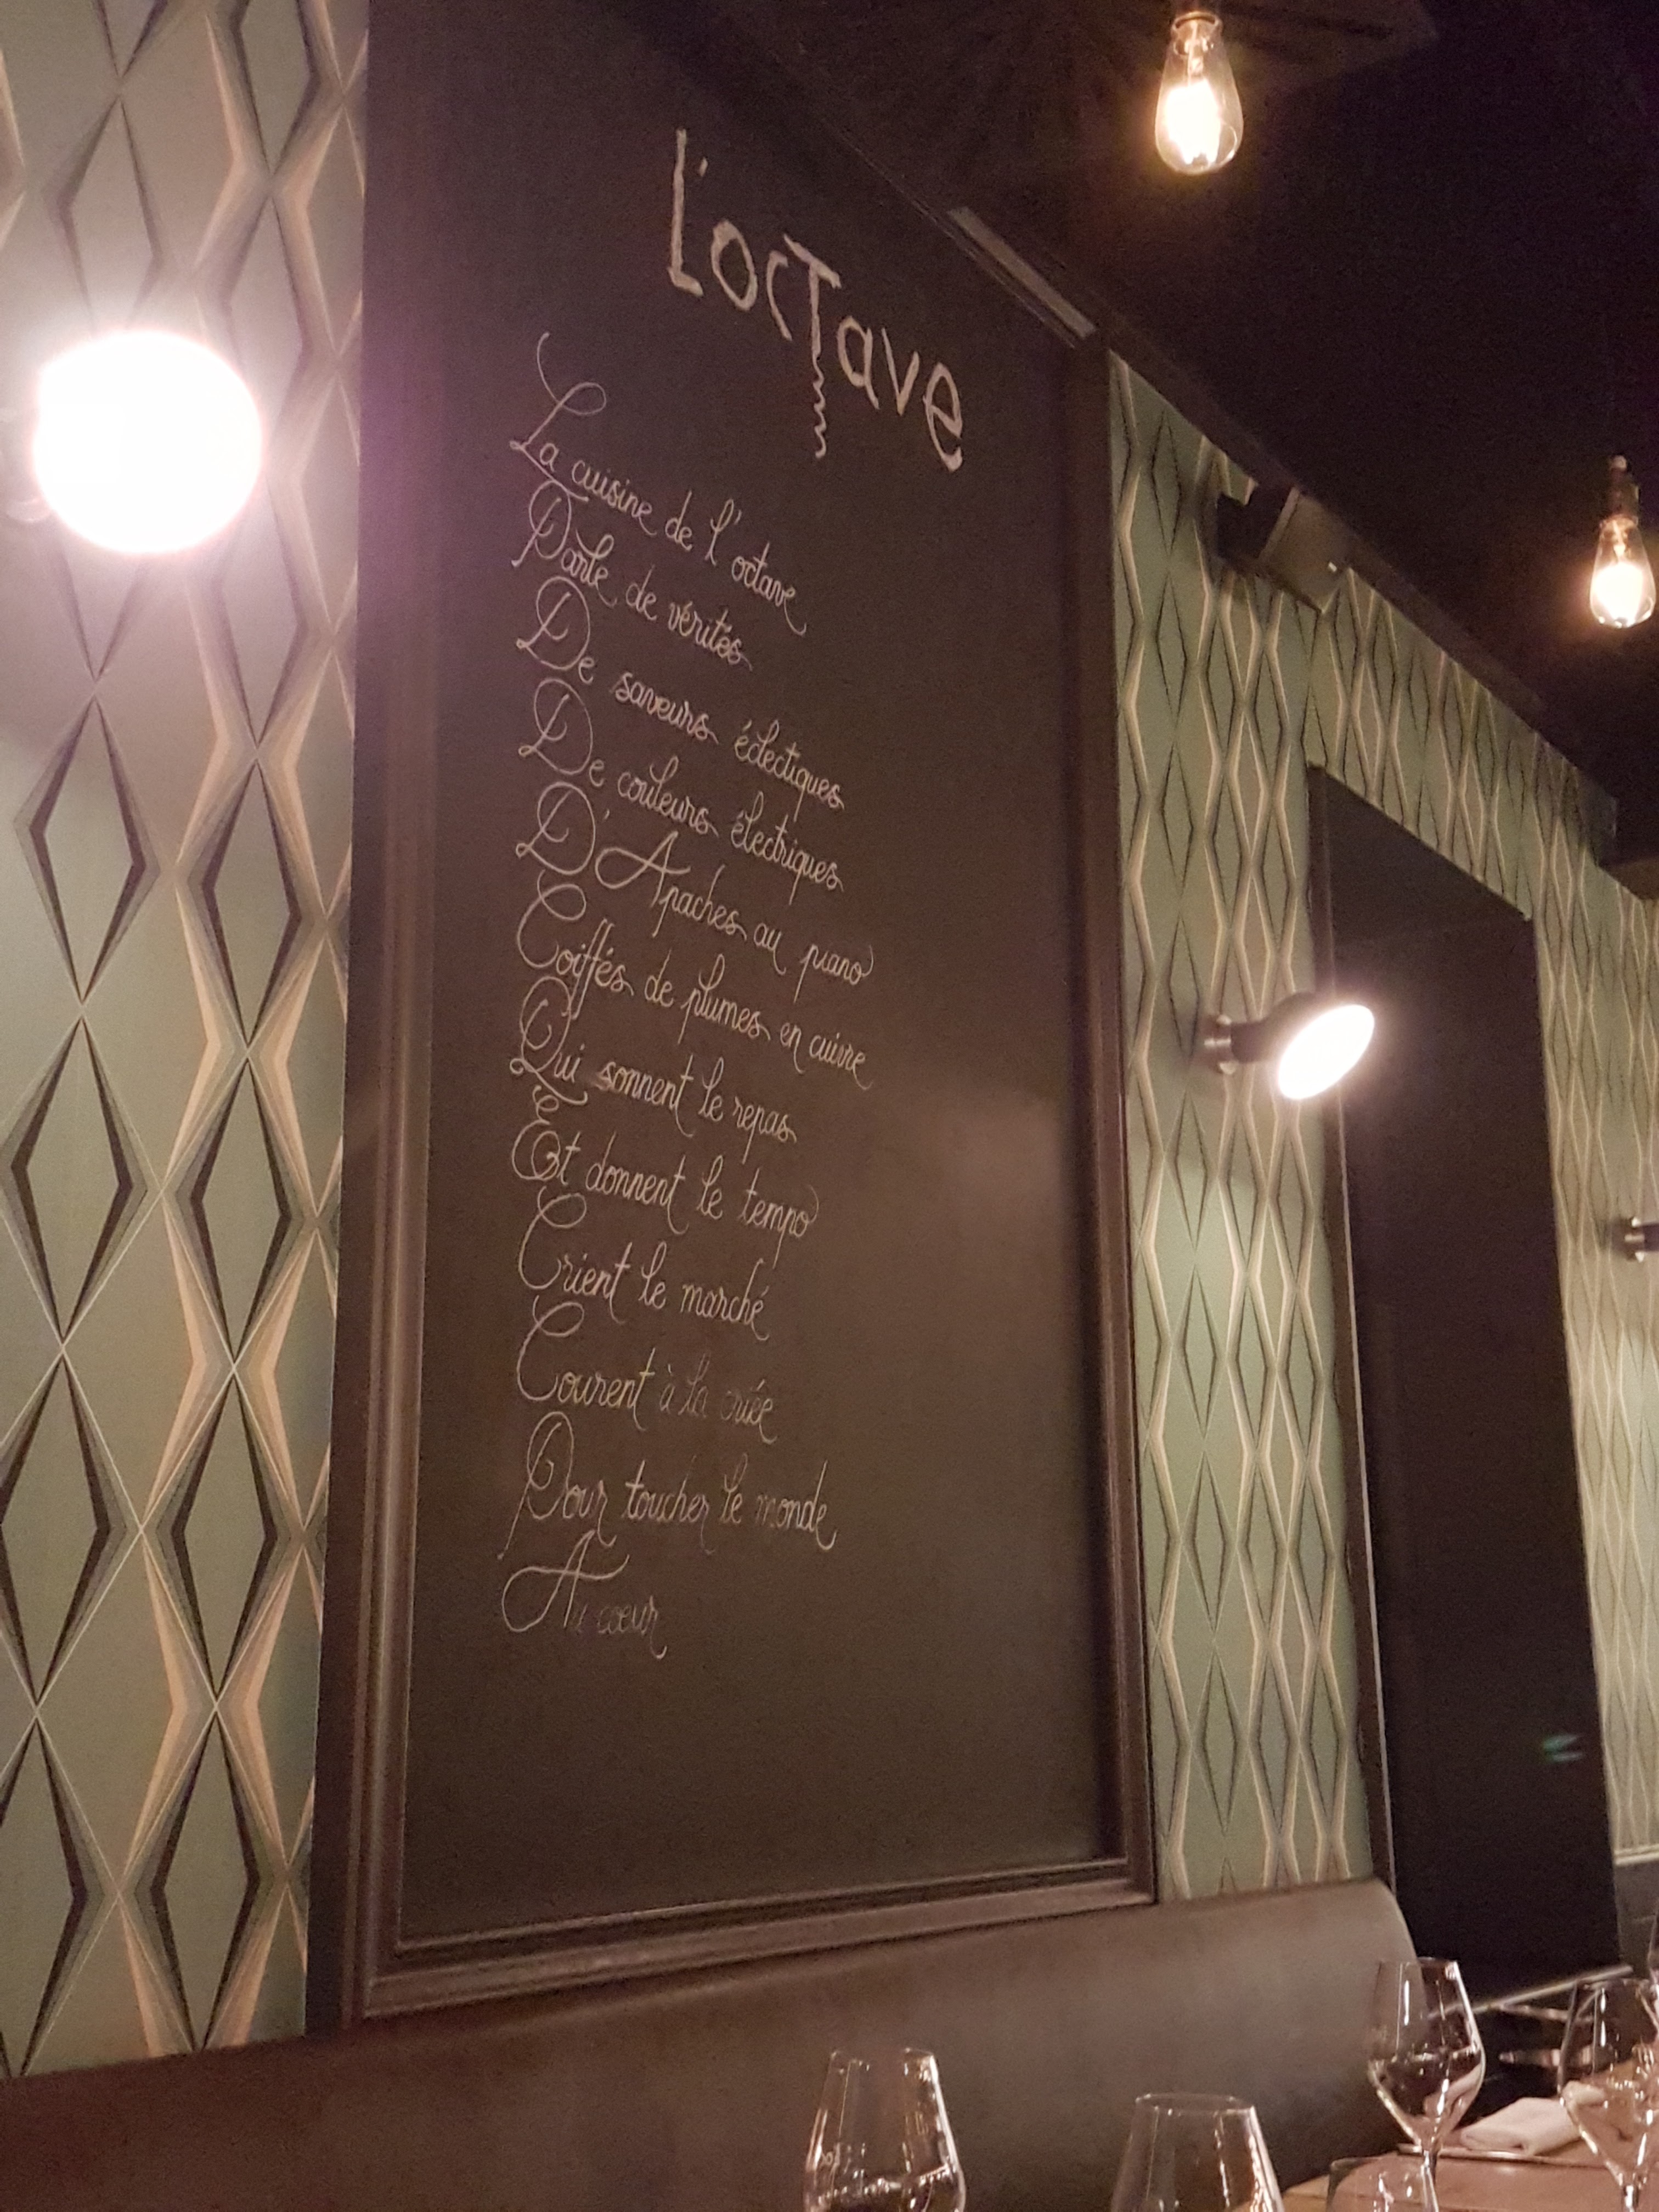 L'ocTave
La cuisine de l'octave
Parle de vérités
De saveurs éclectiques
De couleurs électriques
D'Apaches au piano
Coiffés de plumes en cuivre
Qui sonnent le repas
Et donnent le tempo
Crient le marché
Courent à la criée
Pour toucher le monde
Au coeur